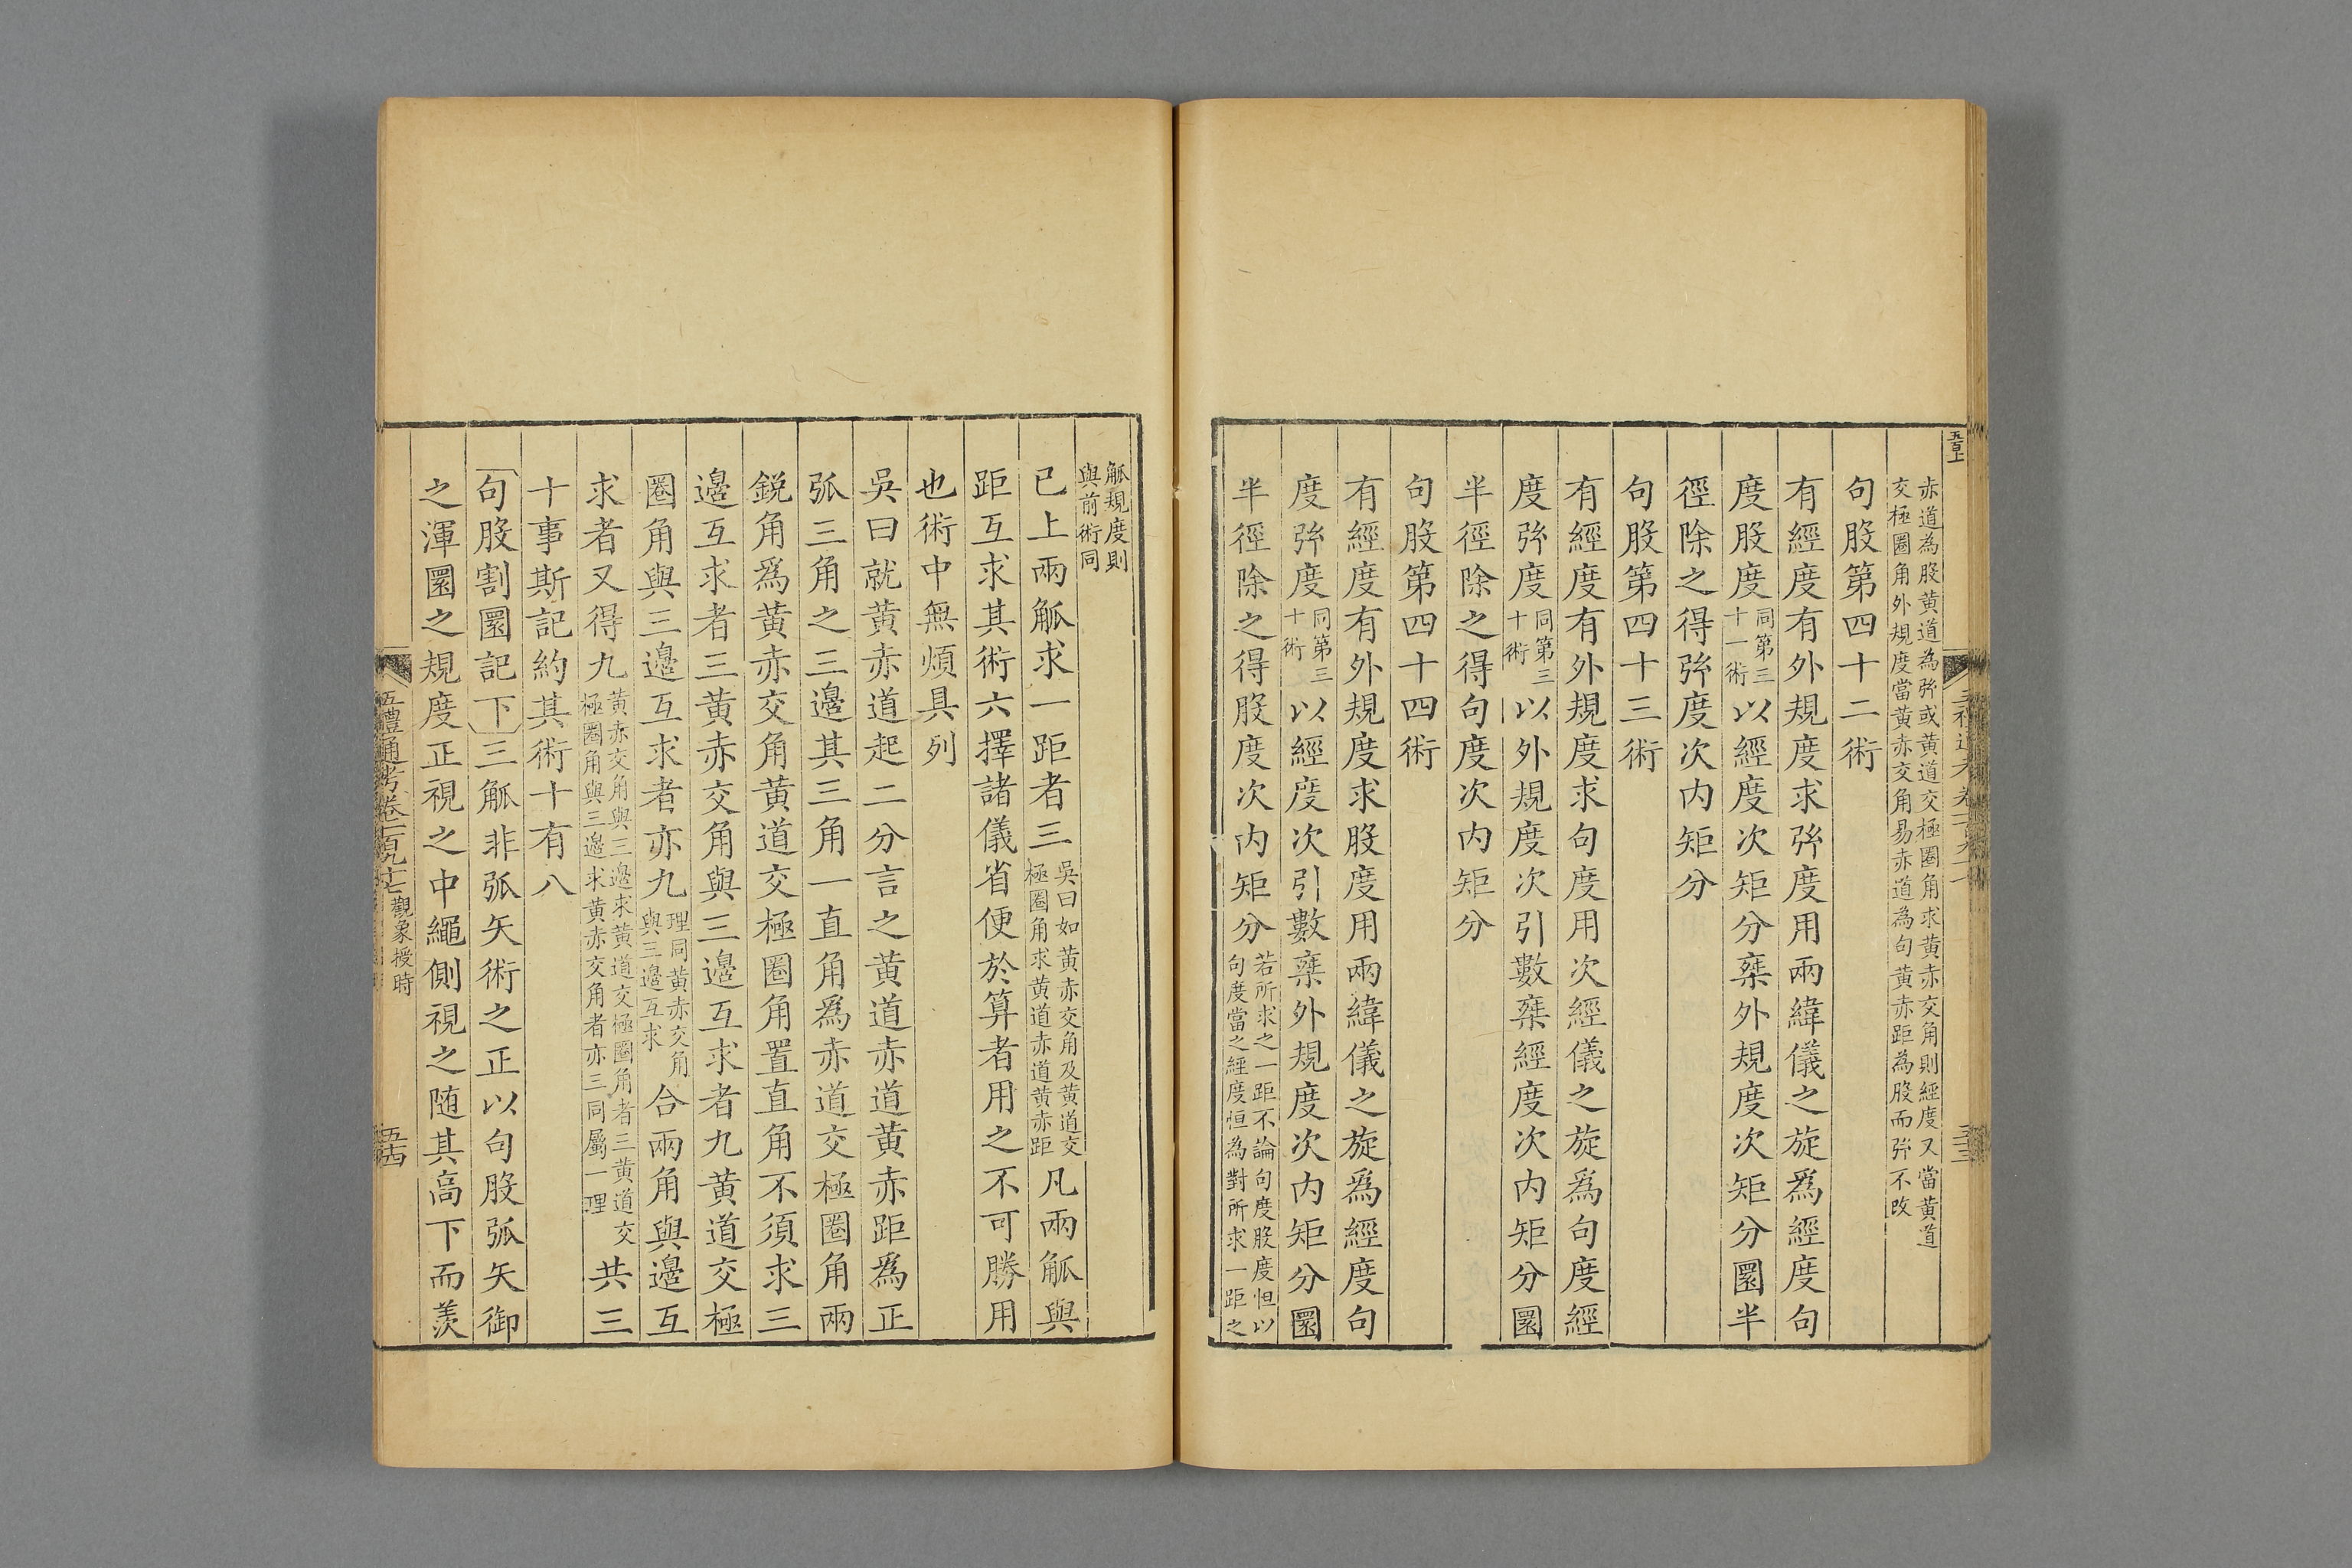 赤道為股黄道為弥或黄道交極圏角求黄赤交角則經度又當黄道
交極圏角外規度當黄赤交角易赤道為句黄赤距為股而弥不改
句股第四十二術
有經度有外規度求弥度用兩緯儀之旋爲經度句
度股度同第三十一術以經度次矩分椉外規度次矩分圜半
徑除之得弥度次内矩分
句股第四十三術
有經度有外規度求句度用次經儀之旋爲句度經
度弥度同第三十術以外規度次引數椉經度次内矩分圜
半徑除之得句度次内矩分
句股第四十四術
有經度有外規度求股度用兩緯儀之旋爲經度句
度弥度同第三十術以經度次引數椉外規度次内矩分圜
半徑除之得股度次内矩分若所求之一距不論句度股度怛以句度當之經度恒為對所求一距之
觚規度則與前術同
已上兩觚求一距者三吳曰如黄赤交角及黄道交極圏角求黄道赤道黄赤距凡兩觚與
距互求其術六擇諸儀省便於算者用之不可勝用
也術中無煩具列
吳曰就黄赤道起二分言之黄道赤道黄赤距爲正
弧三角之三邊其三角一直角爲赤道交極圏角兩
鋭角爲黄赤交角黄道交極圏角置直角不須求三
邊互求者三黄赤交角與三邊互求者九黄道交極
圏角與三邊互求者亦九理同黄赤交角與三邊互求合兩角與邊互
求者又得九黄赤交角與三邊求黄道交極圏角者三黄道交極圏角與三邊求黄赤交角者亦三同屬一理共三
十事斯記約其術十有八
句股割圜記下三觚非弧矢術之正以句股弧矢御
之渾圜之規度正視之中繩側視之随其高下而羨
五禮通考卷一百九十七觀象授時
五十四